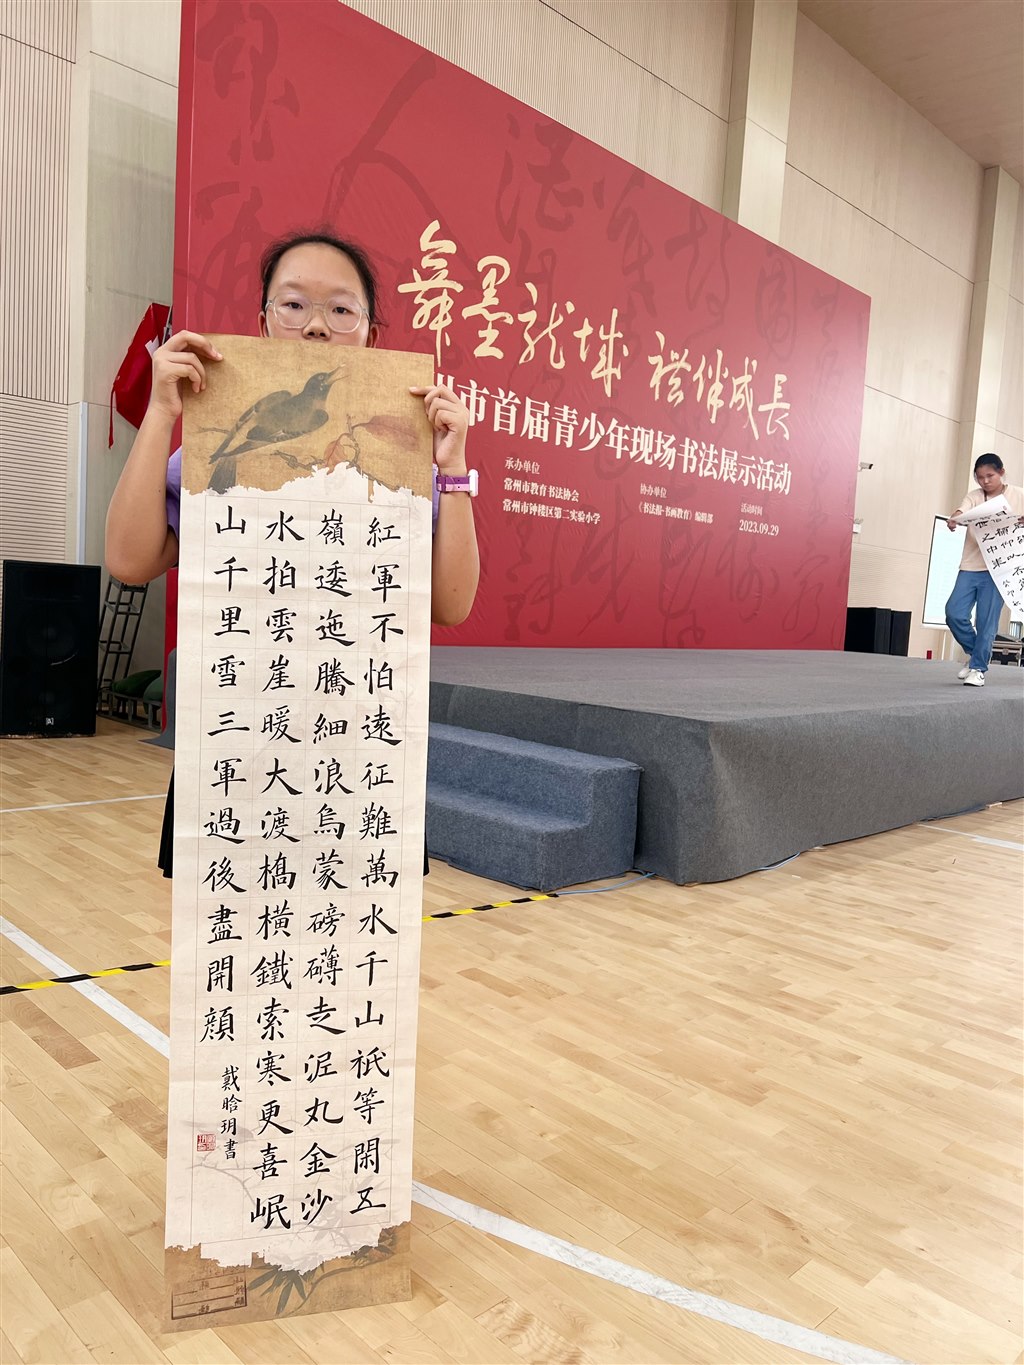 舞墨龍城 伴成長
州市首届青少年现场书法展示活动
承办单位
常州市教育书法协会
常州市钟楼区第二实验小学
协办单位
《书法报·书画教育》编辑部
活动时间
2023.09.29
紅軍不怕遠征難萬水千山祇等閑五
嶺逶迤騰細浪烏蒙磅礴走泥丸金沙
水拍雲崖暖大渡橋橫鐵索寒更喜岷
山千里雪三軍過後盡開顏
戴晗玥書